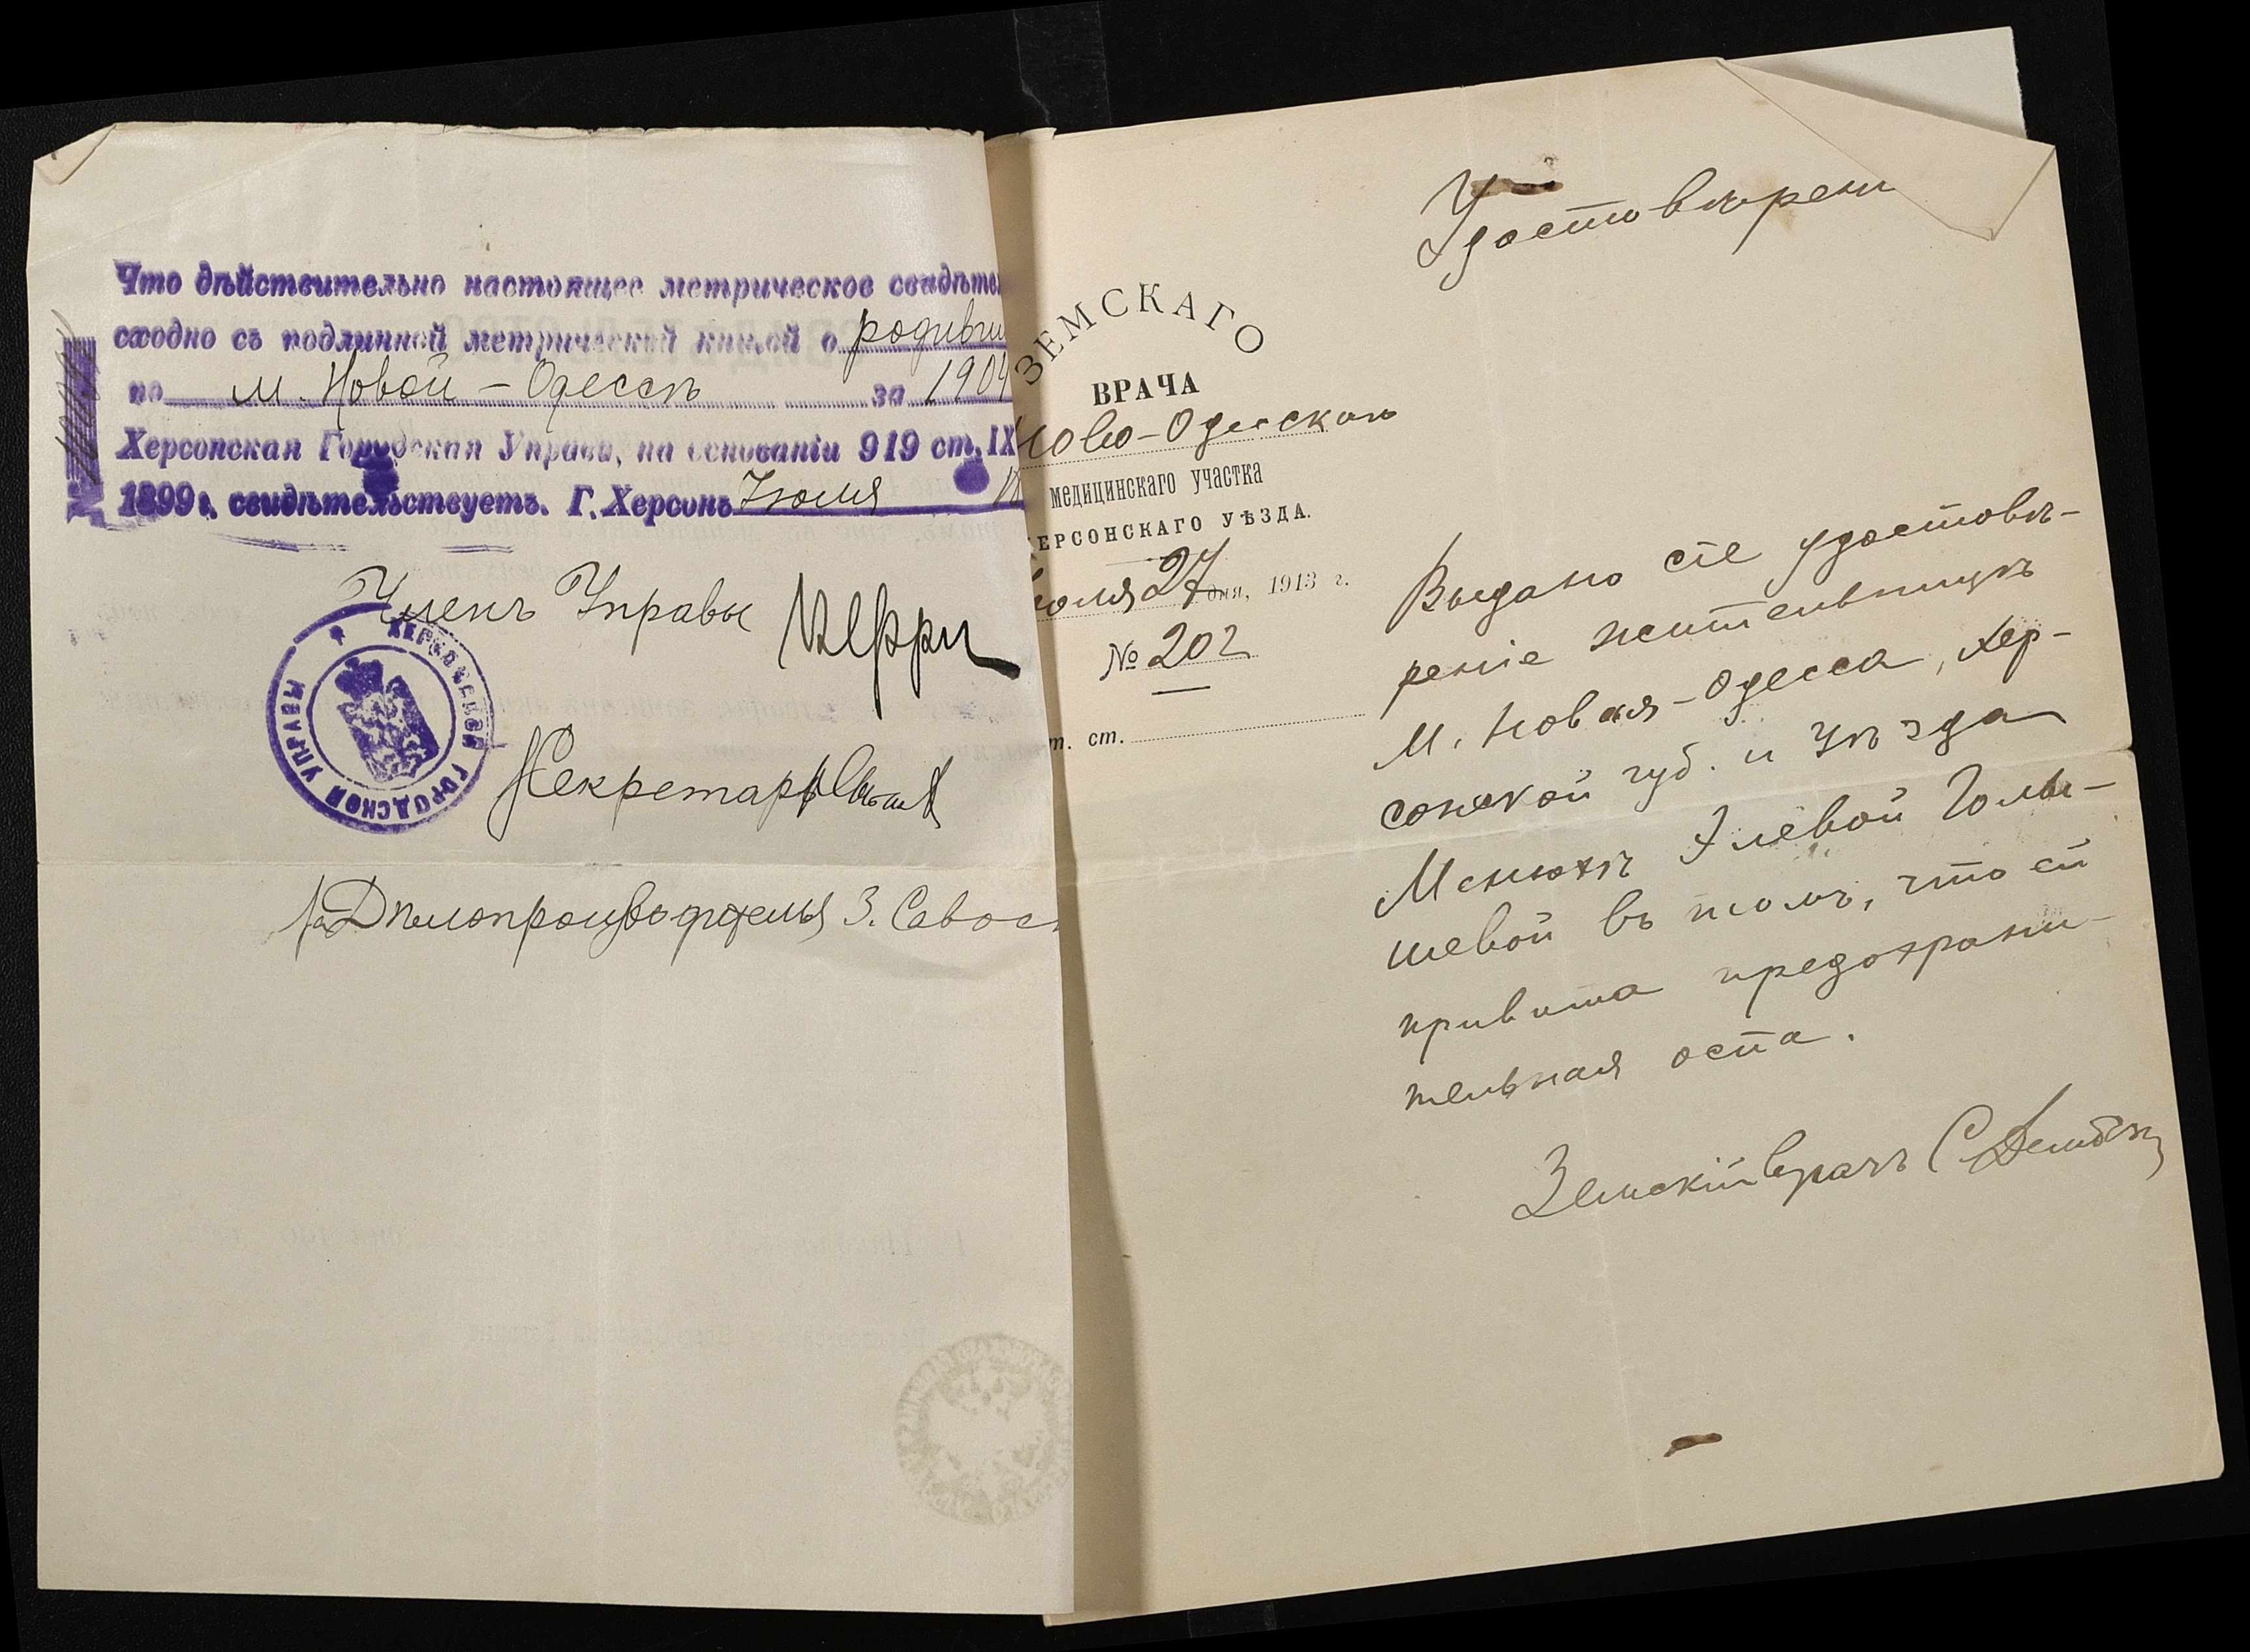 Что дѣйствительно настоящее метрическое свидѣте
сходно съ подлинной метрической книгой о родивш
по м. Новой-Одессѣ за 1904
Херсонская Городская Управа, на основаніи 919 ст. IX
1899 г. свидѣтельствуетъ. Г. Херсонъ Іюля
Членъ Управы
ХЕРСОНСКОЙ ГОРОДСКОЙ УПРАВЫ
Секретарь
Дѣлопроизводитель З. Савос
ЗЕМСКАГО
ВРАЧА
Ново-Одесскаго
медицинскаго участка
ЕРСОНСКАГО УѢЗДА.
юля 27 дня, 1913 г.
№ 202
т. ст.
Удостовѣрені
Выдано сіе удостовѣ-
реніе жительницѣ
м. Новая-Одесса, Хер-
сонской губ. и уѣзда
Менюхѣ Элевой Голы-
шевой въ томъ, что ей
привита предохрани-
тельная оспа.
Земскій врачъ